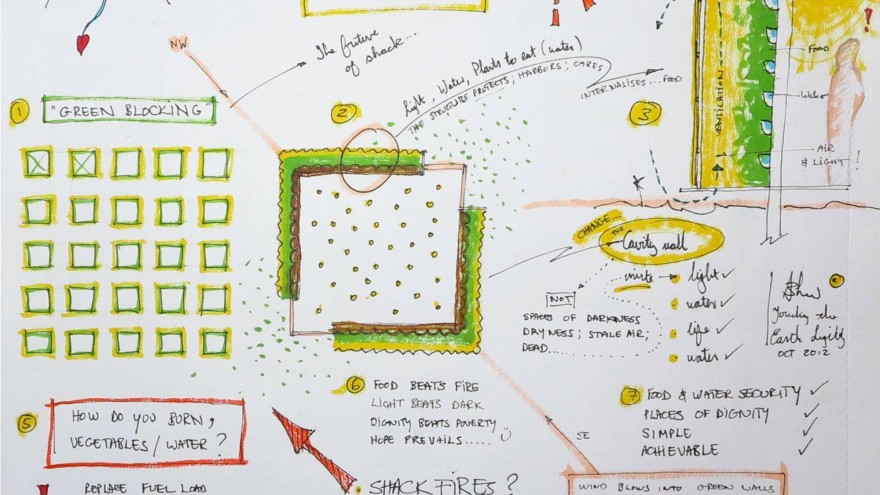 NW
The future
of shack...
Light, Water, Plants to eat (water)
THE STRUCTURE PROTECTS; HARBORS; CARES
INTERNALISES... FOOD
1
"GREEN BLOCKING"
2
3
VENTILATION
FOOD
Water
AIR
& LIGHT!
CHANGE...
THE
Cavity wall
invite → light ✓
water ✓
life ✓
water ✓
NOT
SPACES OF DARKNESS
DAYNESS; STALE AIR;
DEAD....
Touching the
Earth Lightly
OCT 2012
5
HOW DO YOU BURN,
VEGETABLES/WATER?
REPLACE FUEL LOAD
6
FOOD BEATS FIRE
LIGHT BEATS DARK
DIGNITY BEATS POVERTY
HOPE PREVAILS.....
SHACK FIRES?
SE
7
FOOD & WATER SECURITY ✓
PLACES OF DIGNITY ✓
SIMPLE ✓
ACHIEVABLE ✓
WIND BLOWS INTO GREEN WALLS